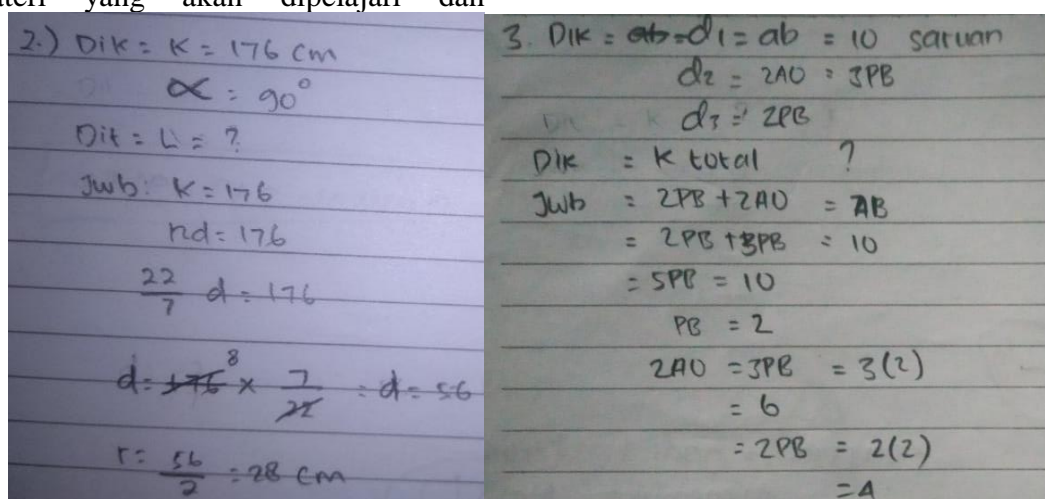 yang akan dipelajari dan
2.) Dik = K = 176 cm
α = 90°
Dit = L = ?
Jwb: K = 176
πd = 176
22/7 d = 176
d = 176 8 × 7/22 = d = 56
r = 56/2 = 28 cm
3. Dik = ab = d1 = ab = 10 saruan
d2 = 2AO = 3PB
d3 = 2PB
Dik = K total ?
Jwb = 2PB + 2AO = AB
= 2PB + 3PB = 10
= 5PB = 10
PB = 2
2AO = 3PB = 3(2)
= 6
= 2PB = 2(2)
= 4